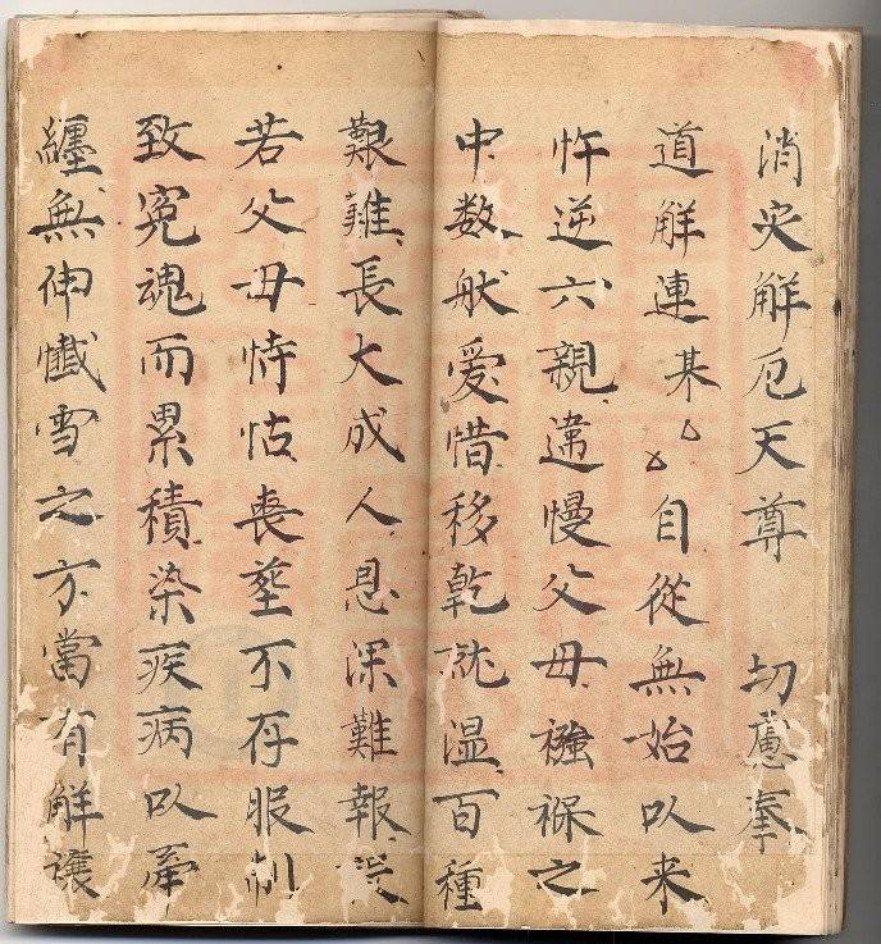 消灾觧厄天尊 切慮奉
道觧連某厶厶自從無始以来
忤逆六親違慢父母襁褓之
中数般愛惜移乾就湿百種
艱難長大成人恩深難報
若父母恃怙喪塟不存服制
致冤魂而累積染疾病以牽
纏無伸懴雪之方當有解禳